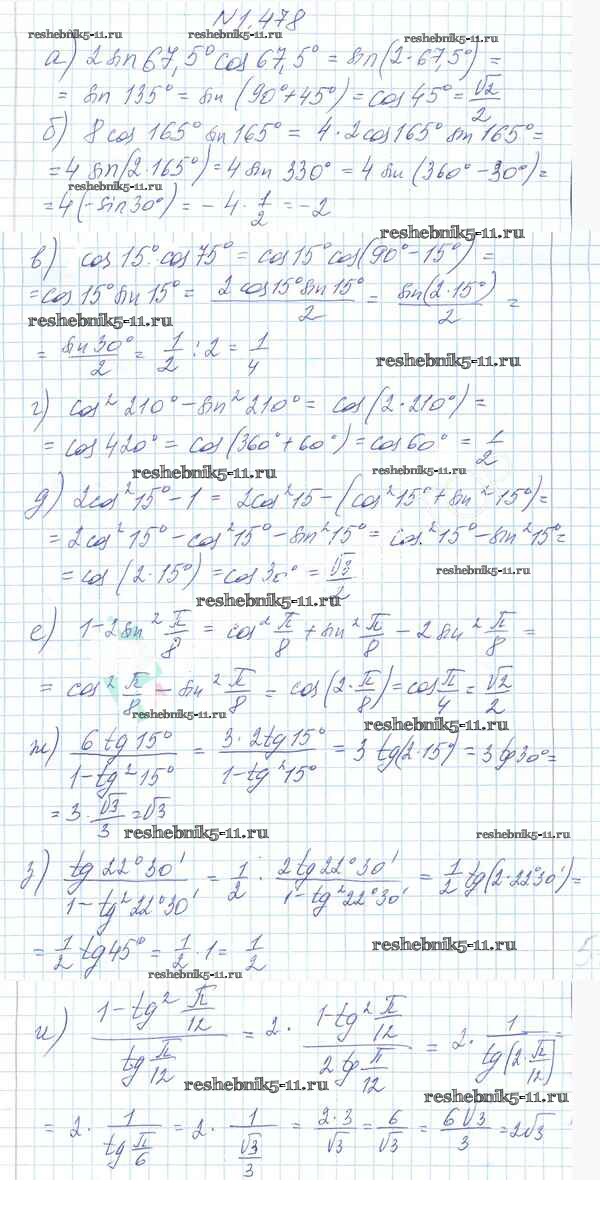 N1.478
reshebnik5-11.ru reshebnik5-11.ru reshebnik5-11.ru
а) 2 sin 67,5° cos 67,5° = sin(2·67,5°) =
= sin 135° = sin (90°+45°) = cos 45° = √2/2
б) 8 cos 165° sin 165° = 4·2cos165° sin 165° =
= 4 sin(2·165°) = 4 sin 330° = 4 sin (360° − 30°) =
reshebnik5-11.ru
= 4(−sin30°) = −4·1/2 = −2
reshebnik5-11.ru
в) cos 15°·cos 75° = cos 15° cos(90° − 15°) =
= cos 15° sin 15° = 2 cos15° sin 15°/2 = sin(2·15°)/2 =
reshebnik5-11.ru
= sin 30°/2 = 1/2 : 2 = 1/4
reshebnik5-11.ru
г) cos² 210° − sin² 210° = cos (2·210°) =
= cos 420° = cos (360° + 60°) = cos 60° = 1/2
reshebnik5-11.ru reshebnik5-11.ru
д) 2cos² 15° − 1 = 2cos² 15 − (cos² 15° + sin² 15°) =
= 2cos² 15° − cos² 15° − sin² 15° = cos² 15° − sin² 15° =
= cos (2·15°) = cos 30° = √3/2
reshebnik5-11.ru
reshebnik5-11.ru
е) 1 − 2 sin² π/8 = cos² π/8 + sin² π/8 − 2 sin² π/8 =
= cos² π/8 − sin² π/8 = cos(2·π/8) = cos π/4 = √2/2
reshebnik5-11.ru reshebnik5-11.ru
ж) 6 tg 15°/1−tg² 15° = 3·2tg 15°/1−tg² 15° = 3 tg(2·15°) = 3 tg 30° =
= 3·√3/3 = √3
reshebnik5-11.ru reshebnik5-11.ru
з) tg 22°30′/1−tg² 22°30′ = 1/2 · 2tg 22°30′/1−tg² 22°30′ = 1/2 tg(2·22°30′) =
= 1/2 tg 45° = 1/2 · 1 = 1/2
reshebnik5-11.ru
reshebnik5-11.ru
и) 1−tg² π/12/tg π/12 = 2· 1−tg² π/12/2 tg π/12 = 2· 1/tg(2·π/12) =
reshebnik5-11.ru reshebnik5-11.ru
= 2· 1/tg π/6 = 2· 1/√3/3 = 2·3/√3 = 6/√3 = 6√3/3 = 2√3